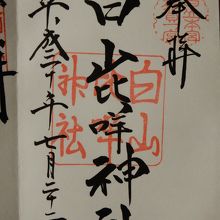 奉拝
白山比咩神社
白山
比咩
神社
平成二十年七月二十二